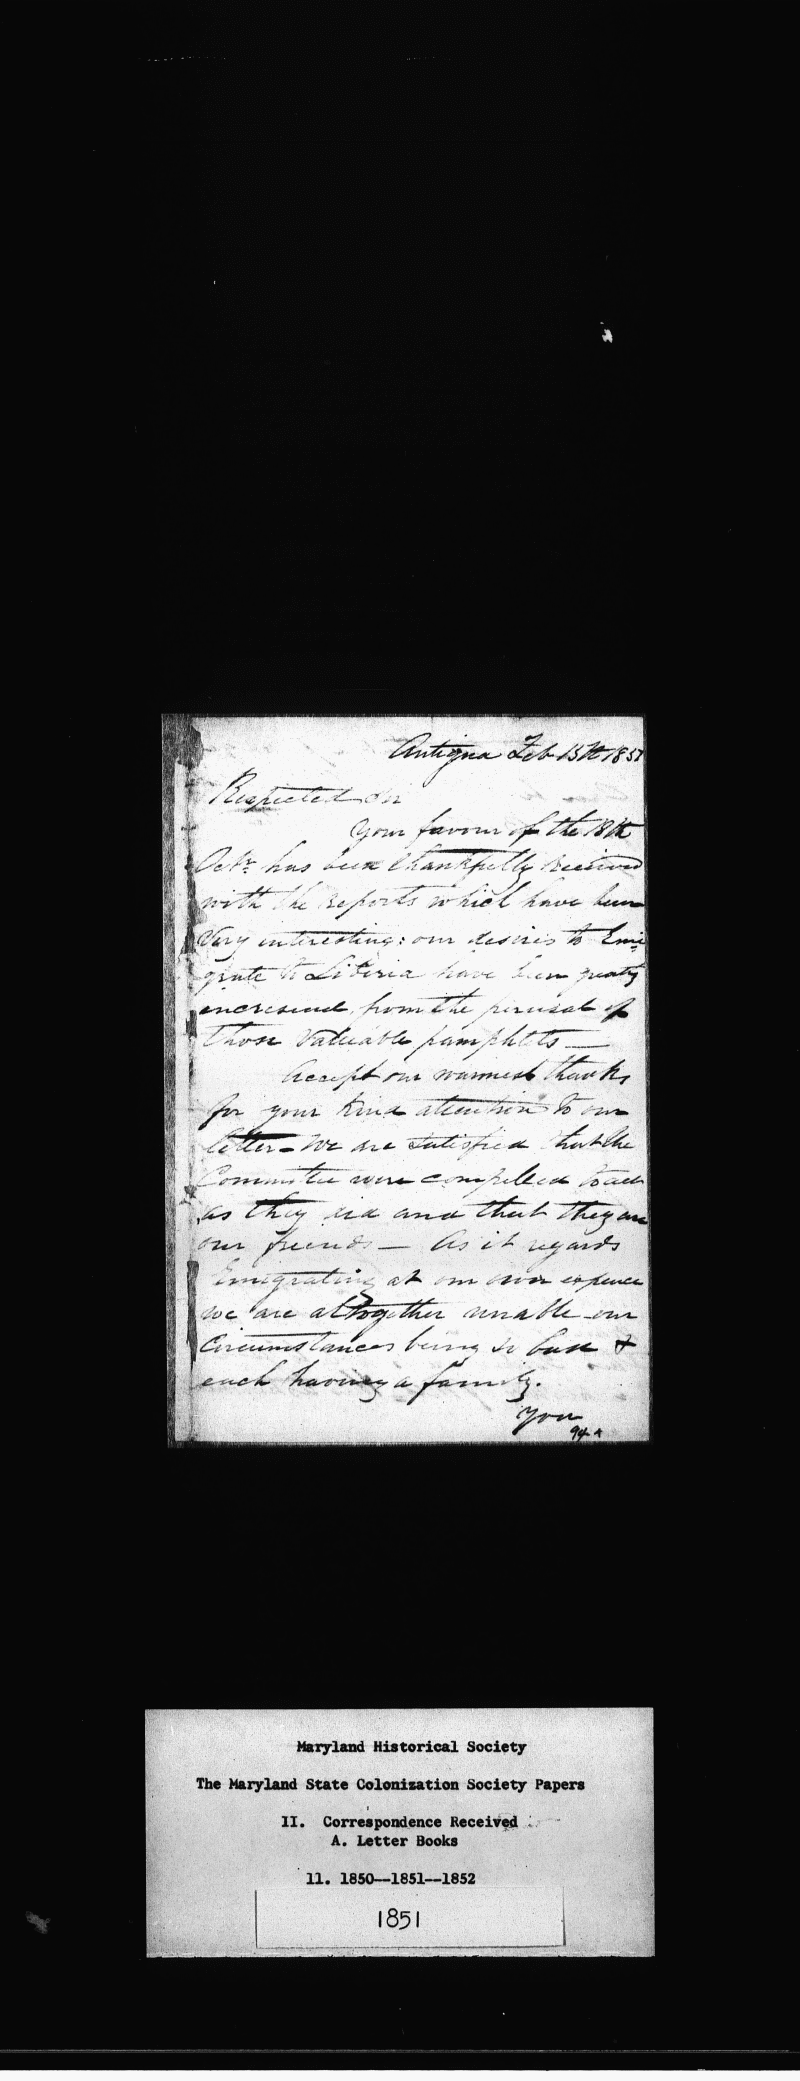 Antigua Feb 15th 1851
Respected Sir
Your favour of the 18th
Octr. has been thankfully received
with the reports which have been
very interesting: our desires to Emi-
grate to Liberia have been greatly
encresend from the perusal of
those valuable pamphlets —
Accept our warmest thanks
for your kind attention to our
letter - We are satisfied that the
Committee were compelled to act
as they did and that they are
our friends — As it regards
Emigrating at our own expence
we are altogether unable our
Circumstances being so base &
each having a family.
You
94 A
Maryland Historical Society
The Maryland State Colonization Society Papers
II. Correspondence Received
A. Letter Books
11. 1850--1851--1852
1851